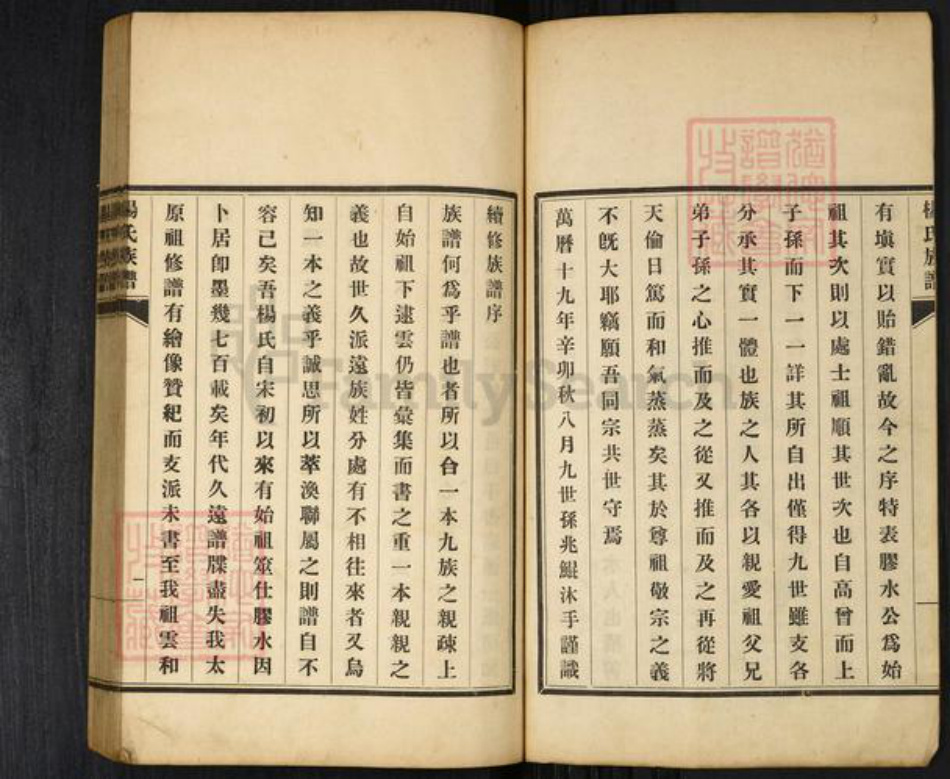 楊氏族譜
有塡實以貽錯亂故今之序特表膠水公爲始
祖其次則以處士祖順其世次也自高曾而上
子孫而下一一詳其所自出僅得九世雖支各
分承其實一體也族之人其各以親愛祖父兄
弟子孫之心推而及之從又推而及之再從將
天倫日篤而和氣蒸蒸矣其於尊祖敬宗之義
不旣大耶竊願吾同宗共世守焉
萬曆十九年辛卯秋八月九世孫兆鯤沐手謹識
續修族譜序
族譜何爲乎譜也者所以合一本九族之親疎上
自始祖下逮雲仍皆彙集而書之重一本親親之
義也故世久派遠族姓分處有不相往來者又烏
知一本之義乎誠思所以萃渙聯屬之則譜自不
容已矣吾楊氏自宋初以來有始祖筮仕膠水因
卜居卽墨幾七百載矣年代久遠譜牒盡失我太
原祖修譜有繪像贊紀而支派未書至我祖雲和
楊氏族譜
一
FamilySearch